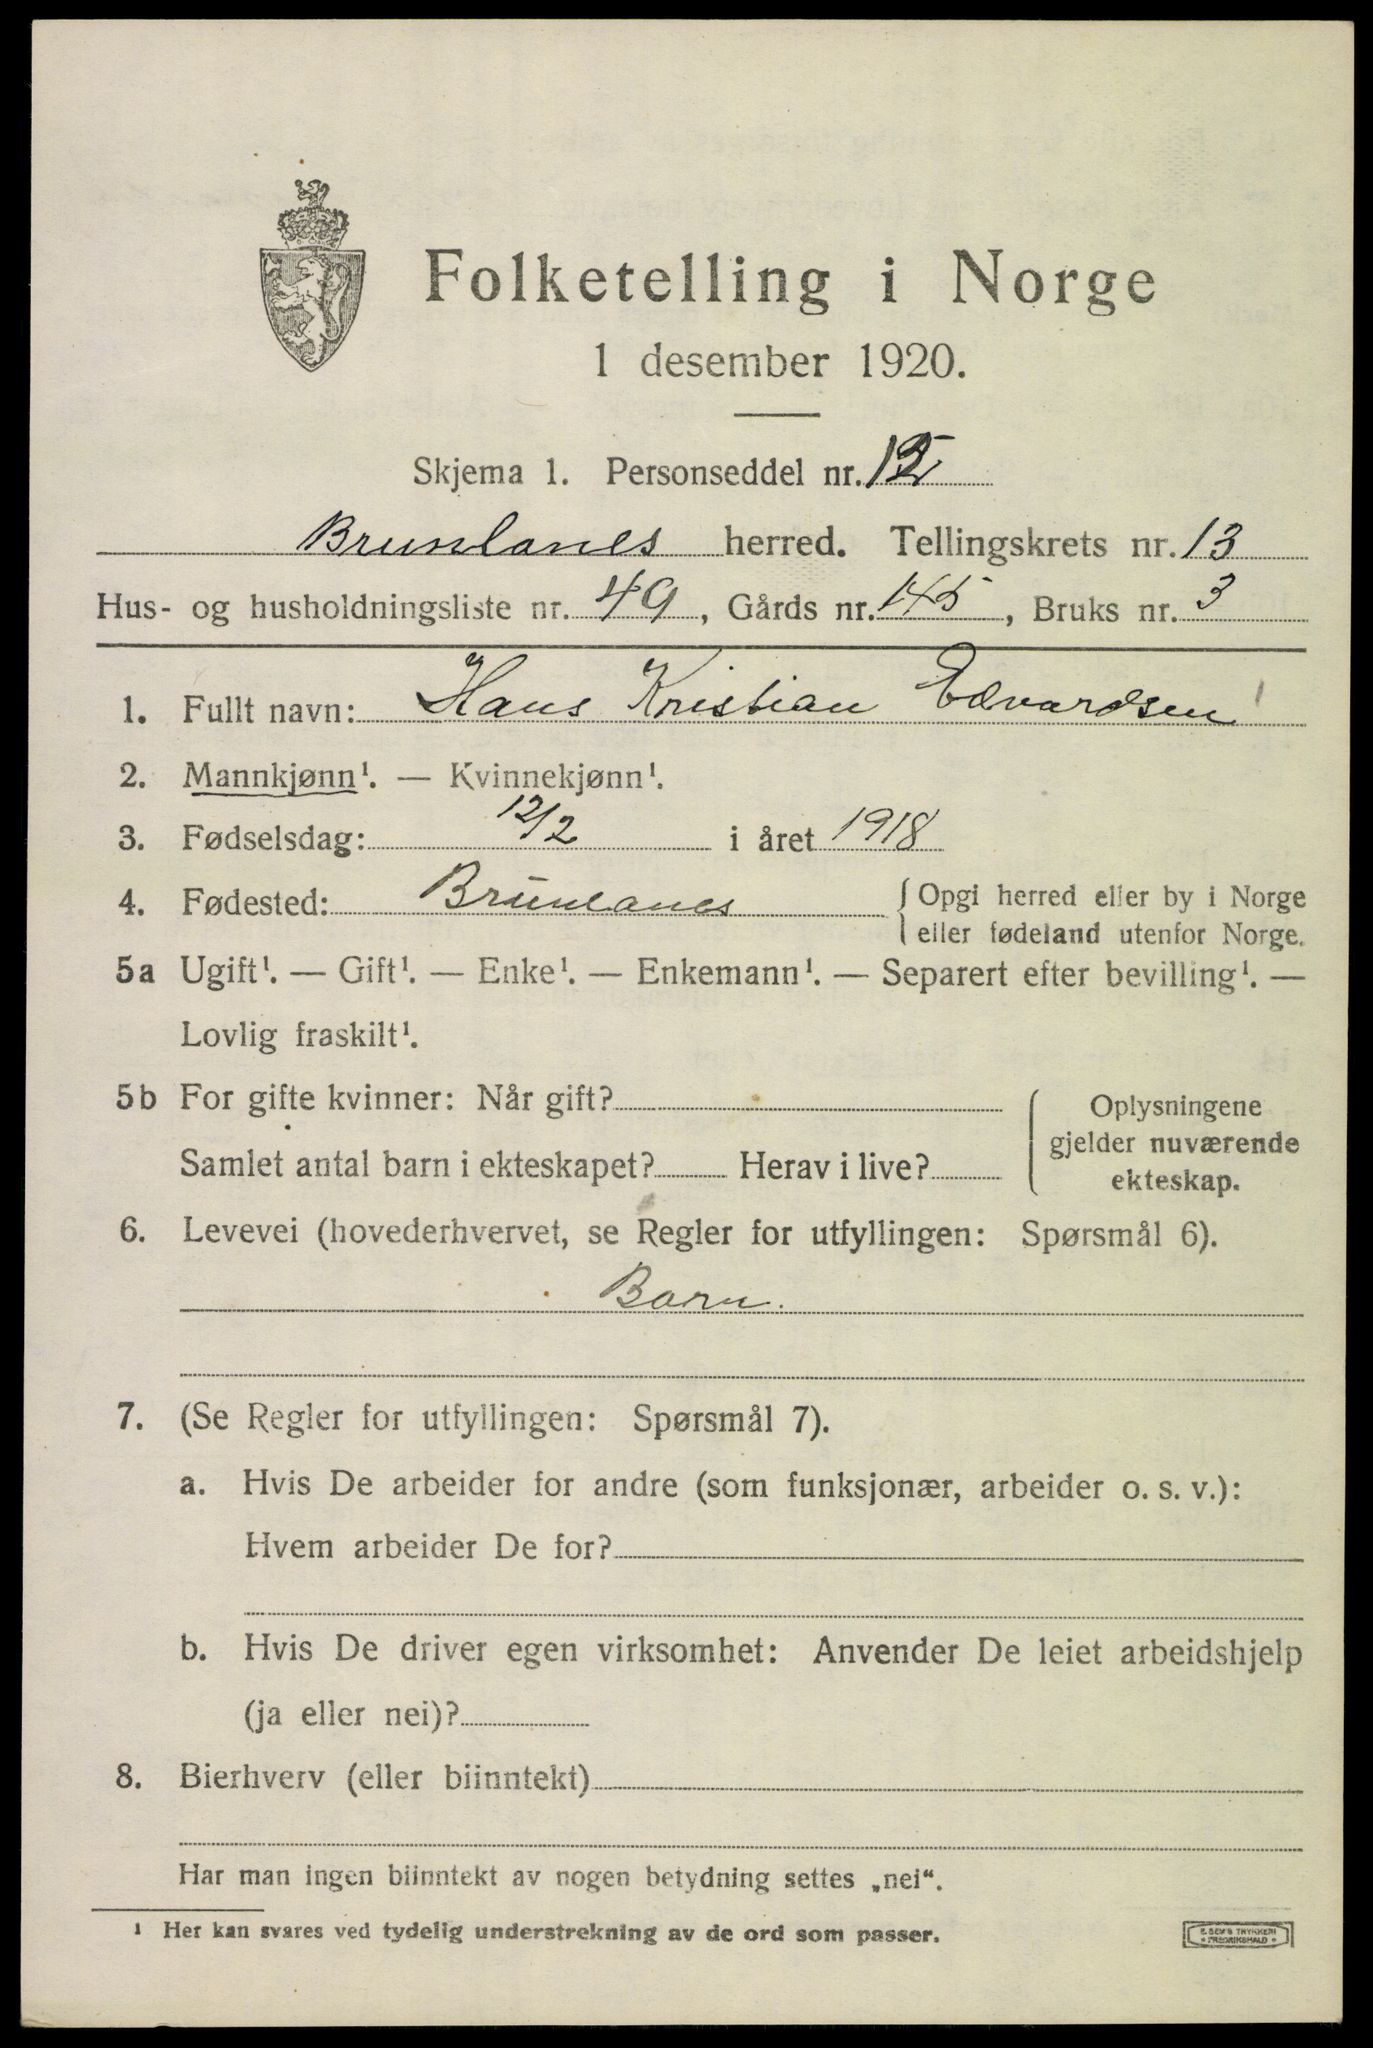 Folketelling i Norge
1 desember 1920.
Skjema 1. Personseddel nr.
Brunlanes herred. Tellingskrets nr. 13
Hus- og husholdningsliste nr. 49, Gårds nr. 145, Bruks nr. 3
1. Fullt navn: Hans Kristian Edvardsen
2. Mannkjønn¹. — Kvinnekjønn¹.
3. Fødselsdag: 12/2 i året 1918
4. Fødested: Brunlanes { Opgi herred eller by i Norge
eller fødeland utenfor Norge.
5a Ugift¹. — Gift¹. — Enke¹. — Enkemann¹. — Separert efter bevilling¹. —
Lovlig fraskilt¹.
5b For gifte kvinner: Når gift?
Samlet antal barn i ekteskapet? Herav i live?
Oplysningene
gjelder nuværende
ekteskap.
6. Levevei (hovederhvervet, se Regler for utfyllingen: Spørsmål 6).
Barn.
7. (Se Regler for utfyllingen: Spørsmål 7).
a. Hvis De arbeider for andre (som funksjonær, arbeider o. s. v.):
Hvem arbeider De for?
b. Hvis De driver egen virksomhet: Anvender De leiet arbeidshjelp
(ja eller nei)?
8. Bierhverv (eller biinntekt)
Har man ingen biinntekt av nogen betydning settes „nei“.
¹ Her kan svares ved tydelig understrekning av de ord som passer.
E. SEM'S TRYKKERI
FREDRIKSHALD